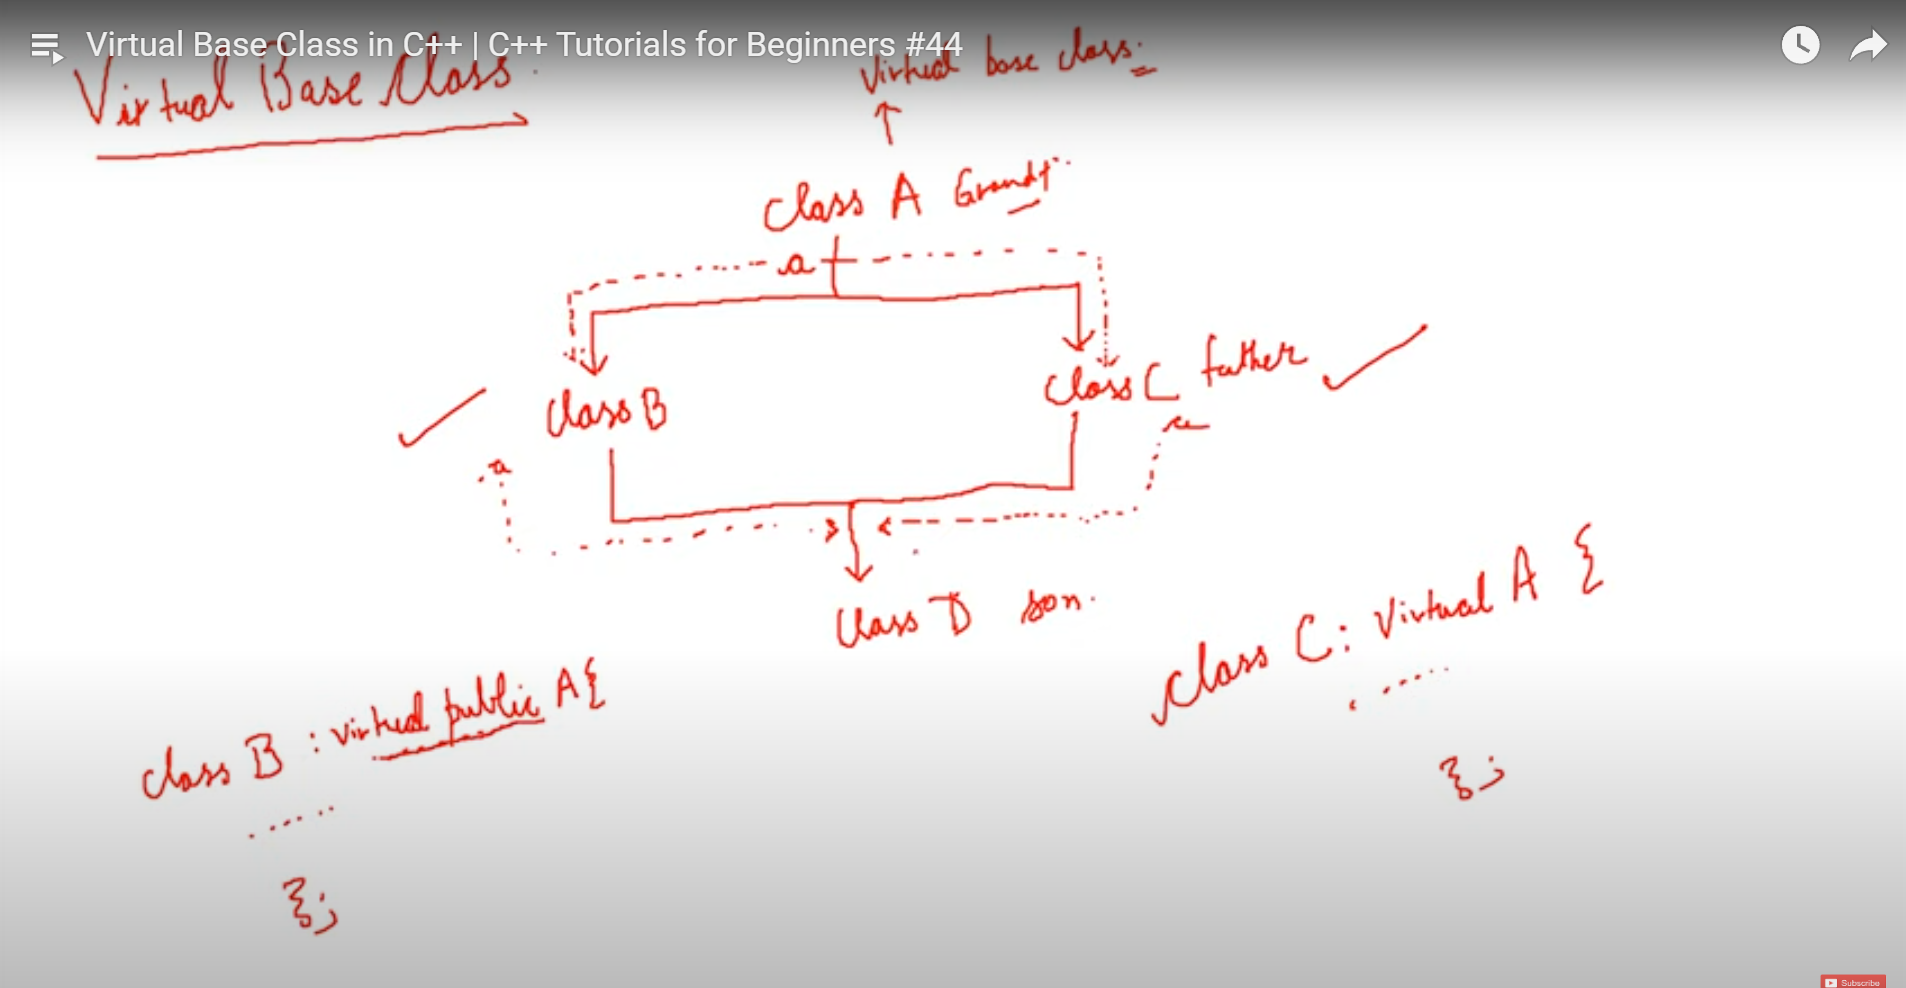 Virtual Base Class in C++ | C++ Tutorials for Beginners #44
Virtual Base Class
Virtual base class
Class A
a
Class B
Class C father
a
Class D son
class B : virtual public A{
.....
};
class C: Virtual A {
.....
};
Subscribe